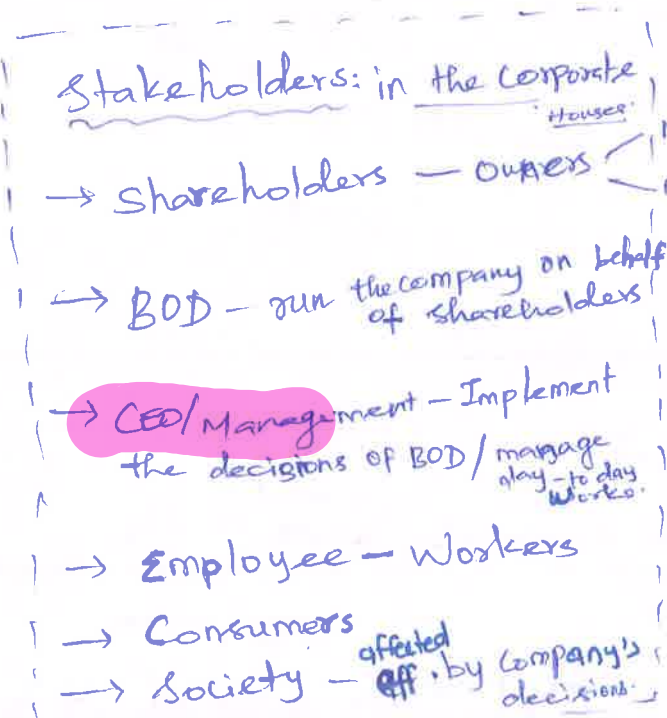 Stakeholders: in the Corporate
Houses
→ Shareholders — Owners
→ BOD - run the company on behalf
of shareholders
→ CEO/Management - Implement
the decisions of BOD / manage
day-to day
works.
→ Employee - Workers
→ Consumers
→ Society - affected by Company's
decisions.